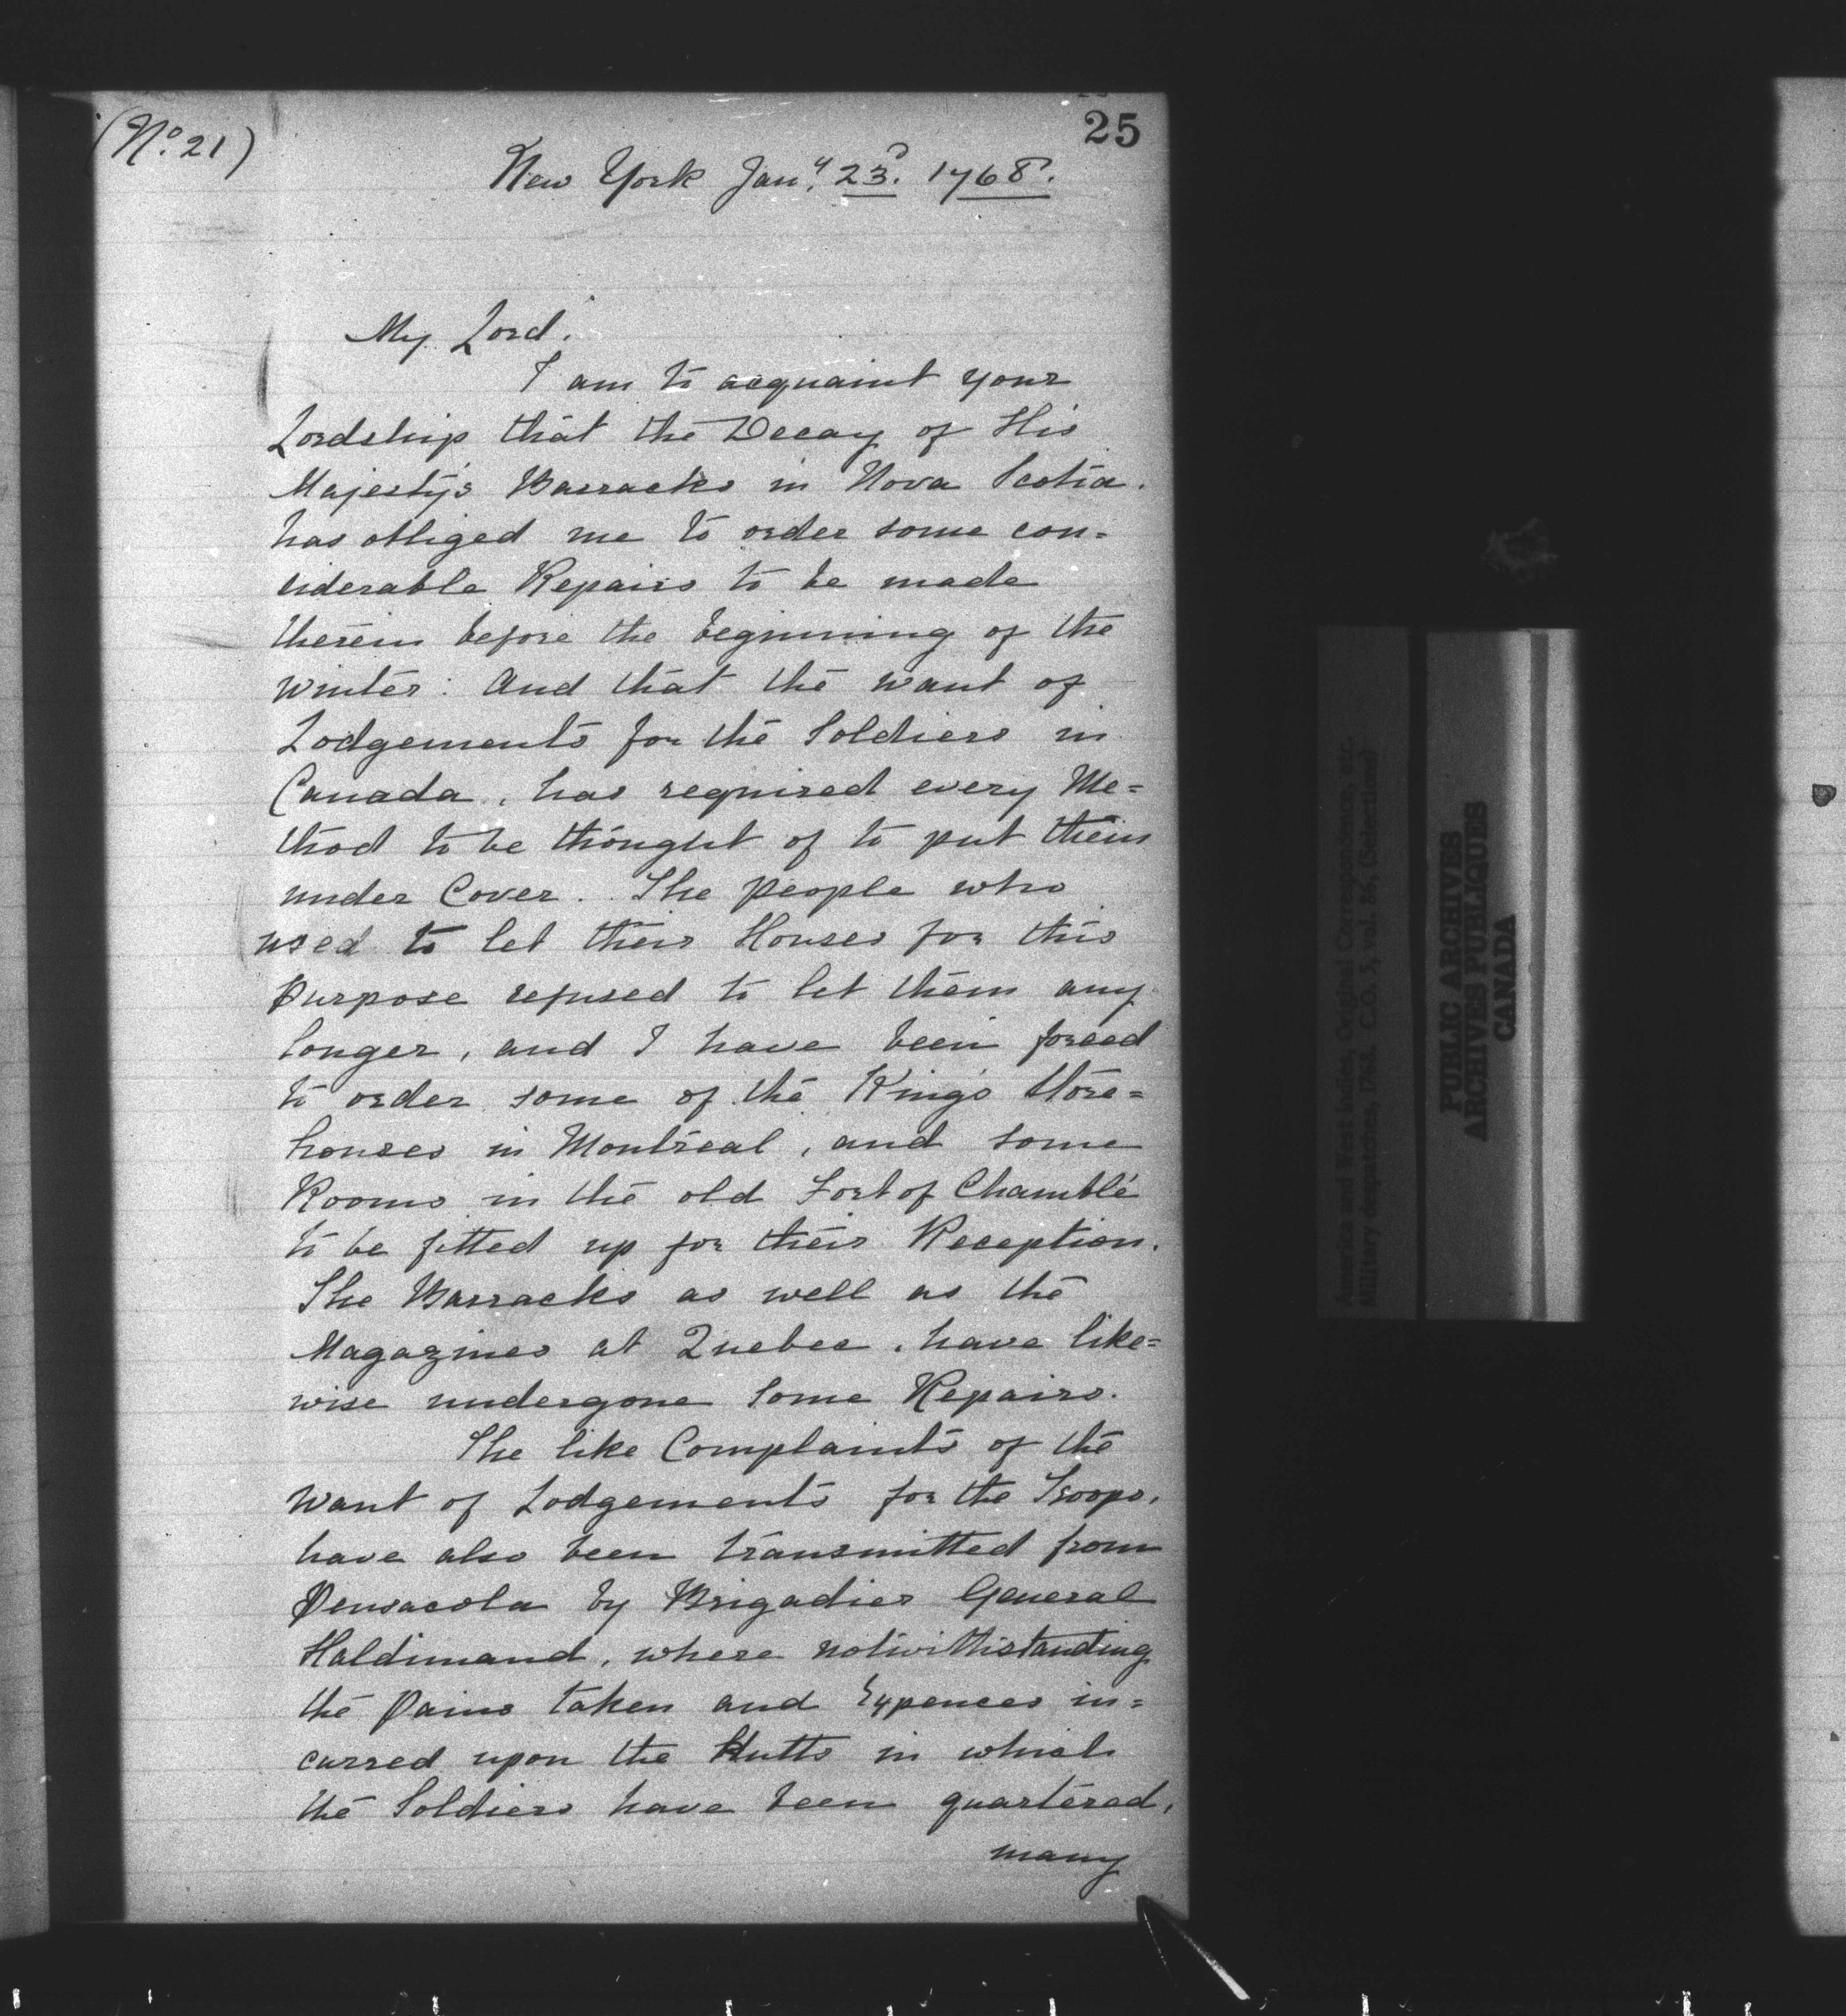 (No. 21)
25
New York Jany. 23d. 1768.
My Lord.
I am to acquaint your
Lordship that the Decay of His
Majesty's Barracks in Nova Scotia.
has obliged me to order some con=
siderable Repairs to be made
therein before the beginning of the
Winter: And that the want of
Lodgements for the Soldiers in
Canada, has required every Me=
thod to be thought of to put them
under Cover. The People who
used to let their Houses for this
Purpose refused to let them any
longer, and I have been forced
to order some of the King's Store=
houses in Montreal, and some
Rooms in the old Fort of Chamblé
to be fitted up for their Reception.
The Barracks as well as the
Magazines at Quebec, have like=
wise undergone some Repairs.
The like Complaints of the
Want of Lodgements for the Troops,
have also been transmitted from
Pensacola by Brigadier General
Haldimand, where notwithstanding
the Pains taken and Expences in=
curred upon the Hutts in which
the Soldiers have been quartered,
many
America and West Indies, Original Correspondence, etc.
Military despatches, 1768. C.O. 5, vol. 86, (Selections)
PUBLIC ARCHIVES
ARCHIVES PUBLIQUES
CANADA